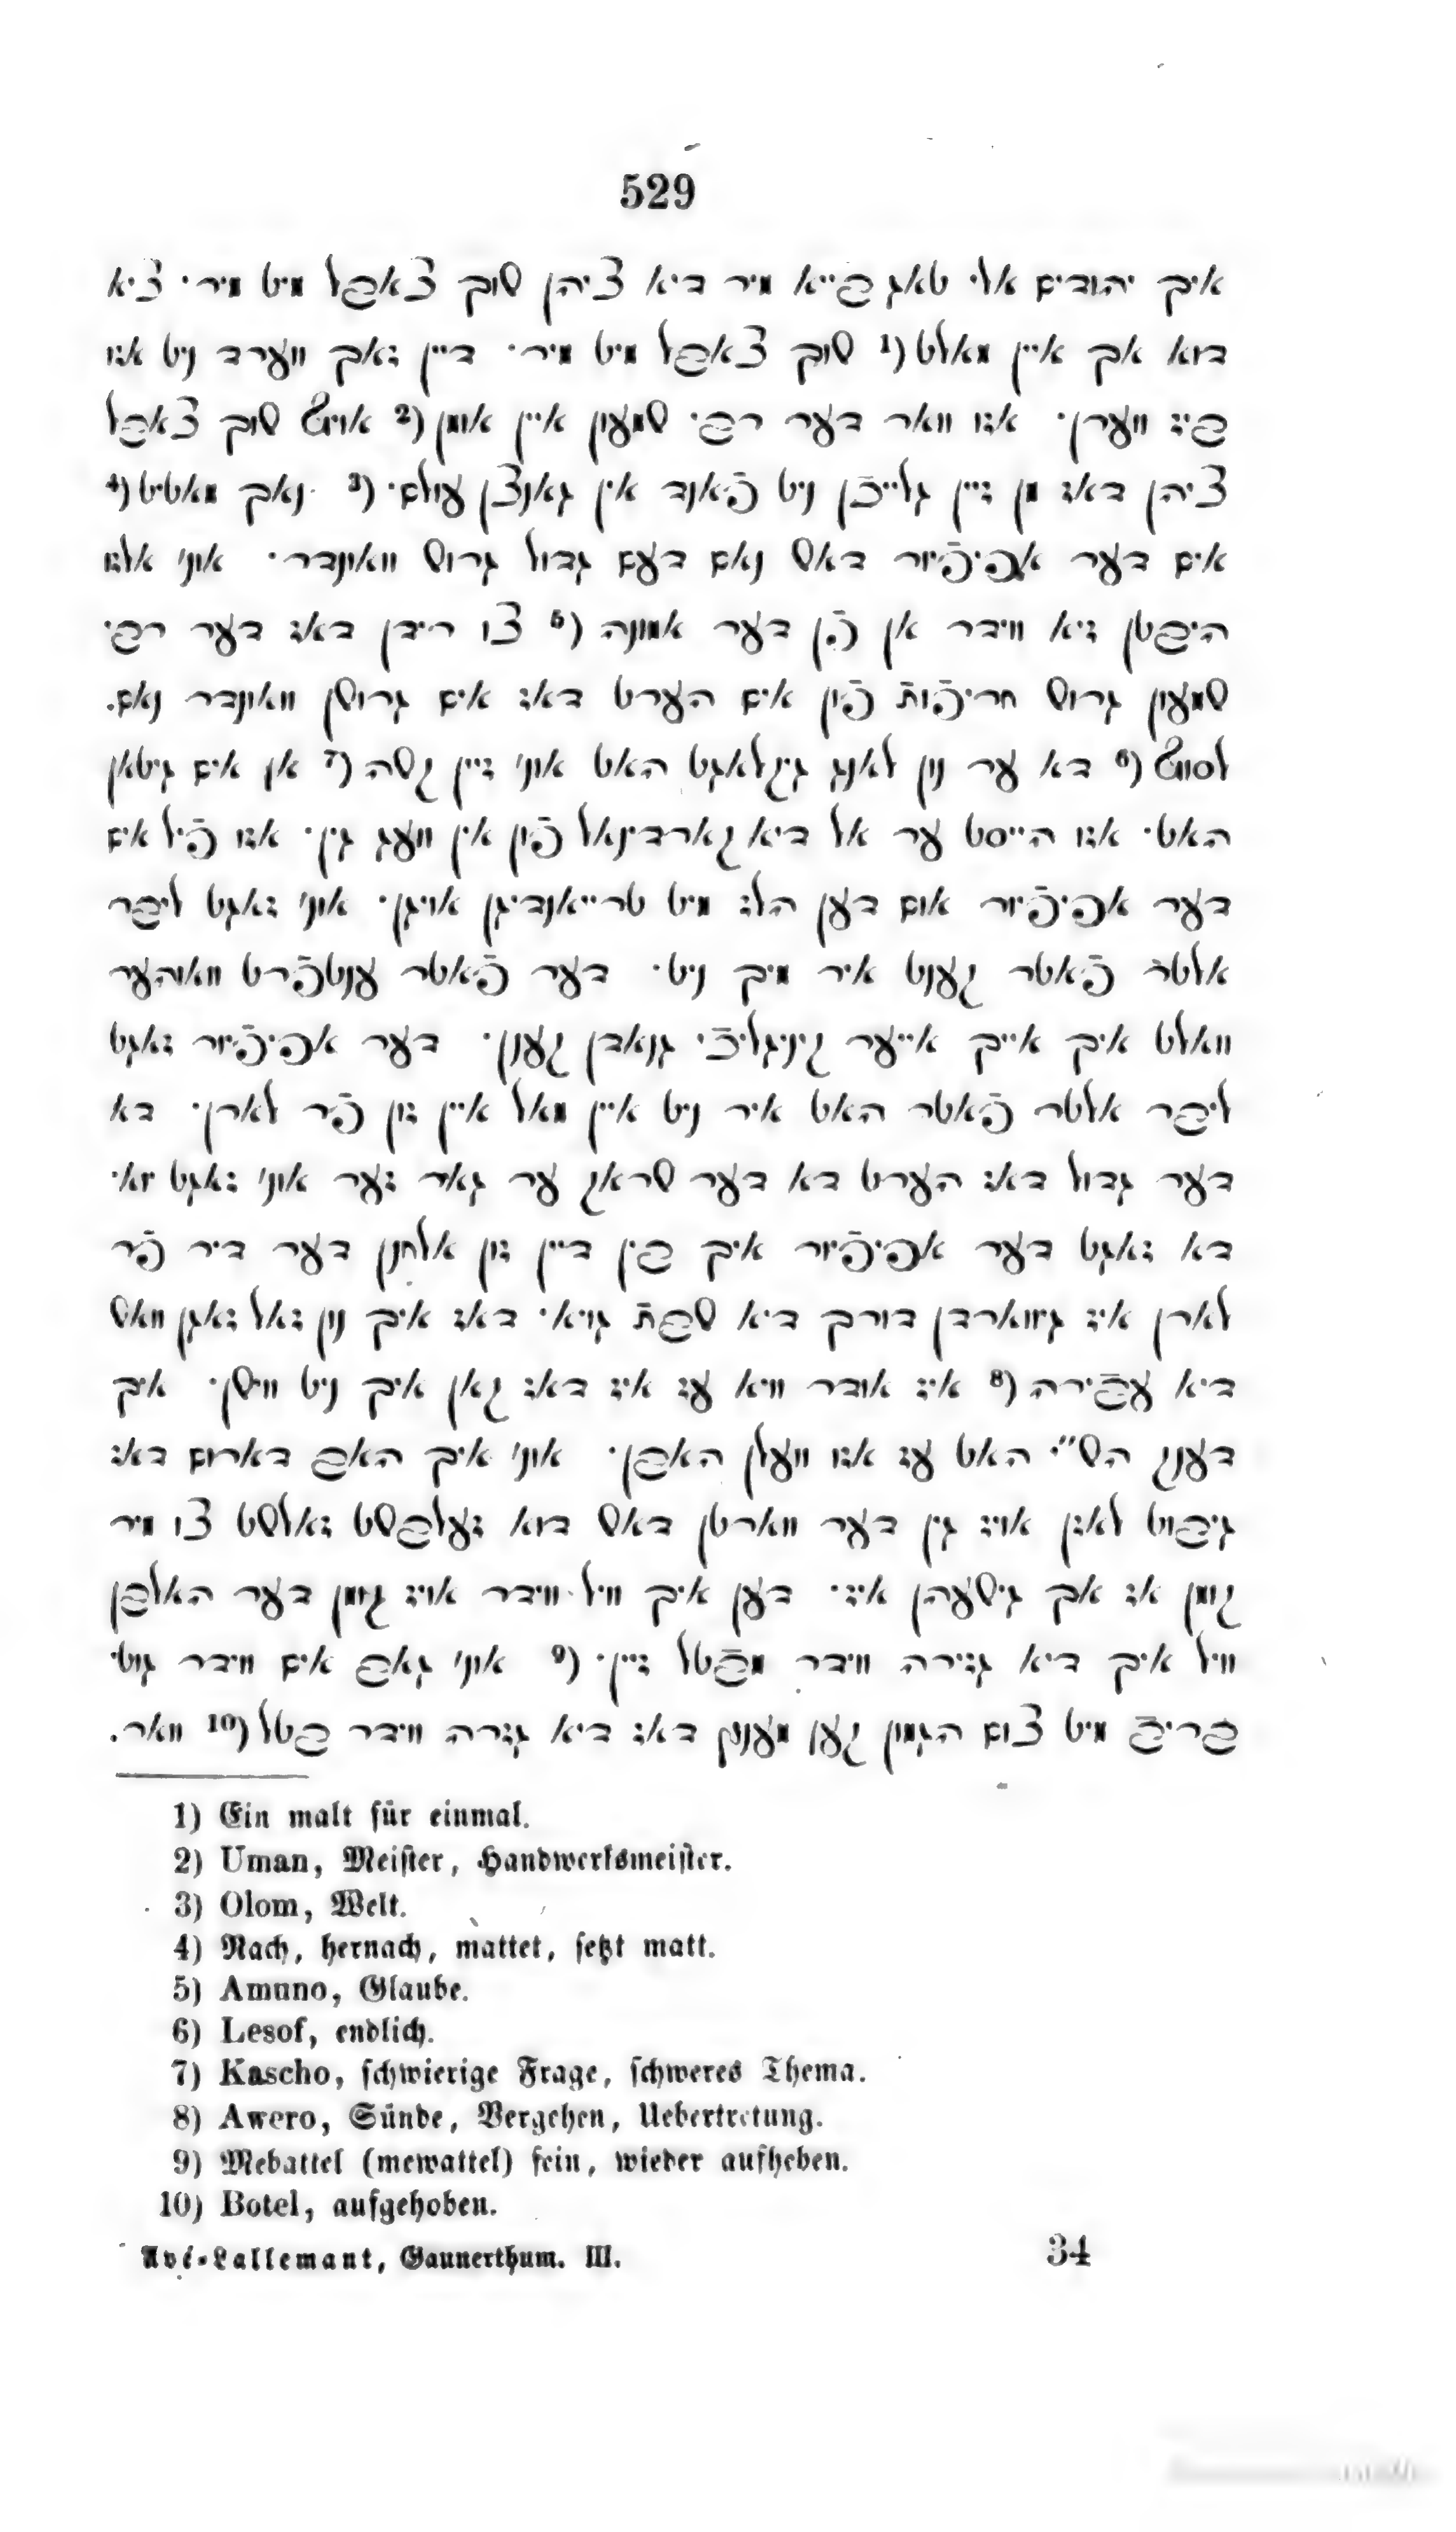 529
איך יהודים אלי טאג פייא מיר דיא ציהן שוך צאפל מיט מיר· ציא
דוא אך איין מאלט (1 שוך צאפל מיט מיר· דיין זאך ווערד ניט אזו
פיז ווערן· אזו וואר דער רפ׳ שמעון איין אומן (2 אויף שוך צאפל
ציהן דאז מן זיין גלייכֿן ניט פֿאנד אין גאנצן עולם· (3 נאך מאטיט (4
אים דער אפיפֿיור דאש נאם דעם גדול גרוש וואונדר· אונ׳ אלזו
היפטן זיא ווידר אן פֿן דער אמונה (5 צו רידן דאז דער רפ׳
שמעון גרוש חריפֿות פֿון אים הערט דאז אים גרושן וואונדר נאם.
לסוף (6 דא ער נון לאנג גיקלאגט האט אונ׳ זיין קשה (7 אן אים גיטאן
האט· אזו הייסט ער אל דיא קארדינאל פֿון אין וועג גין· אזו פֿיל אים
דער אפיפֿיור אום דען הלז מיט טרייאנדיגן אויגן· אונ׳ זאגט ליפר
אלטר פֿאטר קענט איר מיך ניט· דער פֿאטר ענטפֿרט וואוהער
וואלט איך אייך אייער קיניגליכֿי גנאדן קענן· דער אפיפֿיור זאגט
ליפר אלטר פֿאטר האט איר ניט איין מאל איין זון פֿר לארן· דא
דער גדול דאז הערט דא דער שראק ער גאר זער אונ׳ זאגט יוא·
דא זאגט דער אפיפֿיור איך פין דיין זון אלחנן דער דיר פֿר
לארן איז גיווארדן דורך דיא שפתֿ גויא· דאז איך נון זאל זאגן וואש
דיא עפֿירה (8 איז אודר וויא עז איז דאז קאן איך ניט וויסן· איך
דענק הש״י האט עז אזו וועלן האפן· אונ׳ איך האפ דארום דאז
גיפוט לאזן אויז גין דער ווארטן דאש דוא זעלפשט זאלשט צו מיר
קומן אז אך גישעהן איז· דען איך וויל ווידר אויז גומן דער האלפן
וויל איך דיא גזירה ווידר מפֿטל זיין· (9 אונ׳ גאפ אים ווידר גוטי
פריפֿ מיט צום הגמון קען מענץ דאז דיא גזרה ווידר פטל (10 וואר.
1) Ein malt für einmal.
2) Uman, Meister, Handwerksmeister.
3) Olom, Welt.
4) Nach, hernach, mattet, setzt matt.
5) Amuno, Glaube.
6) Lesof, endlich.
7) Kascho, schwierige Frage, schweres Thema.
8) Awero, Sünde, Vergehen, Uebertretung.
9) Mebattel (mewattel) sein, wieder aufheben.
10) Botel, aufgehoben.
Avé-Lallemant, Gaunerthum. III. 34